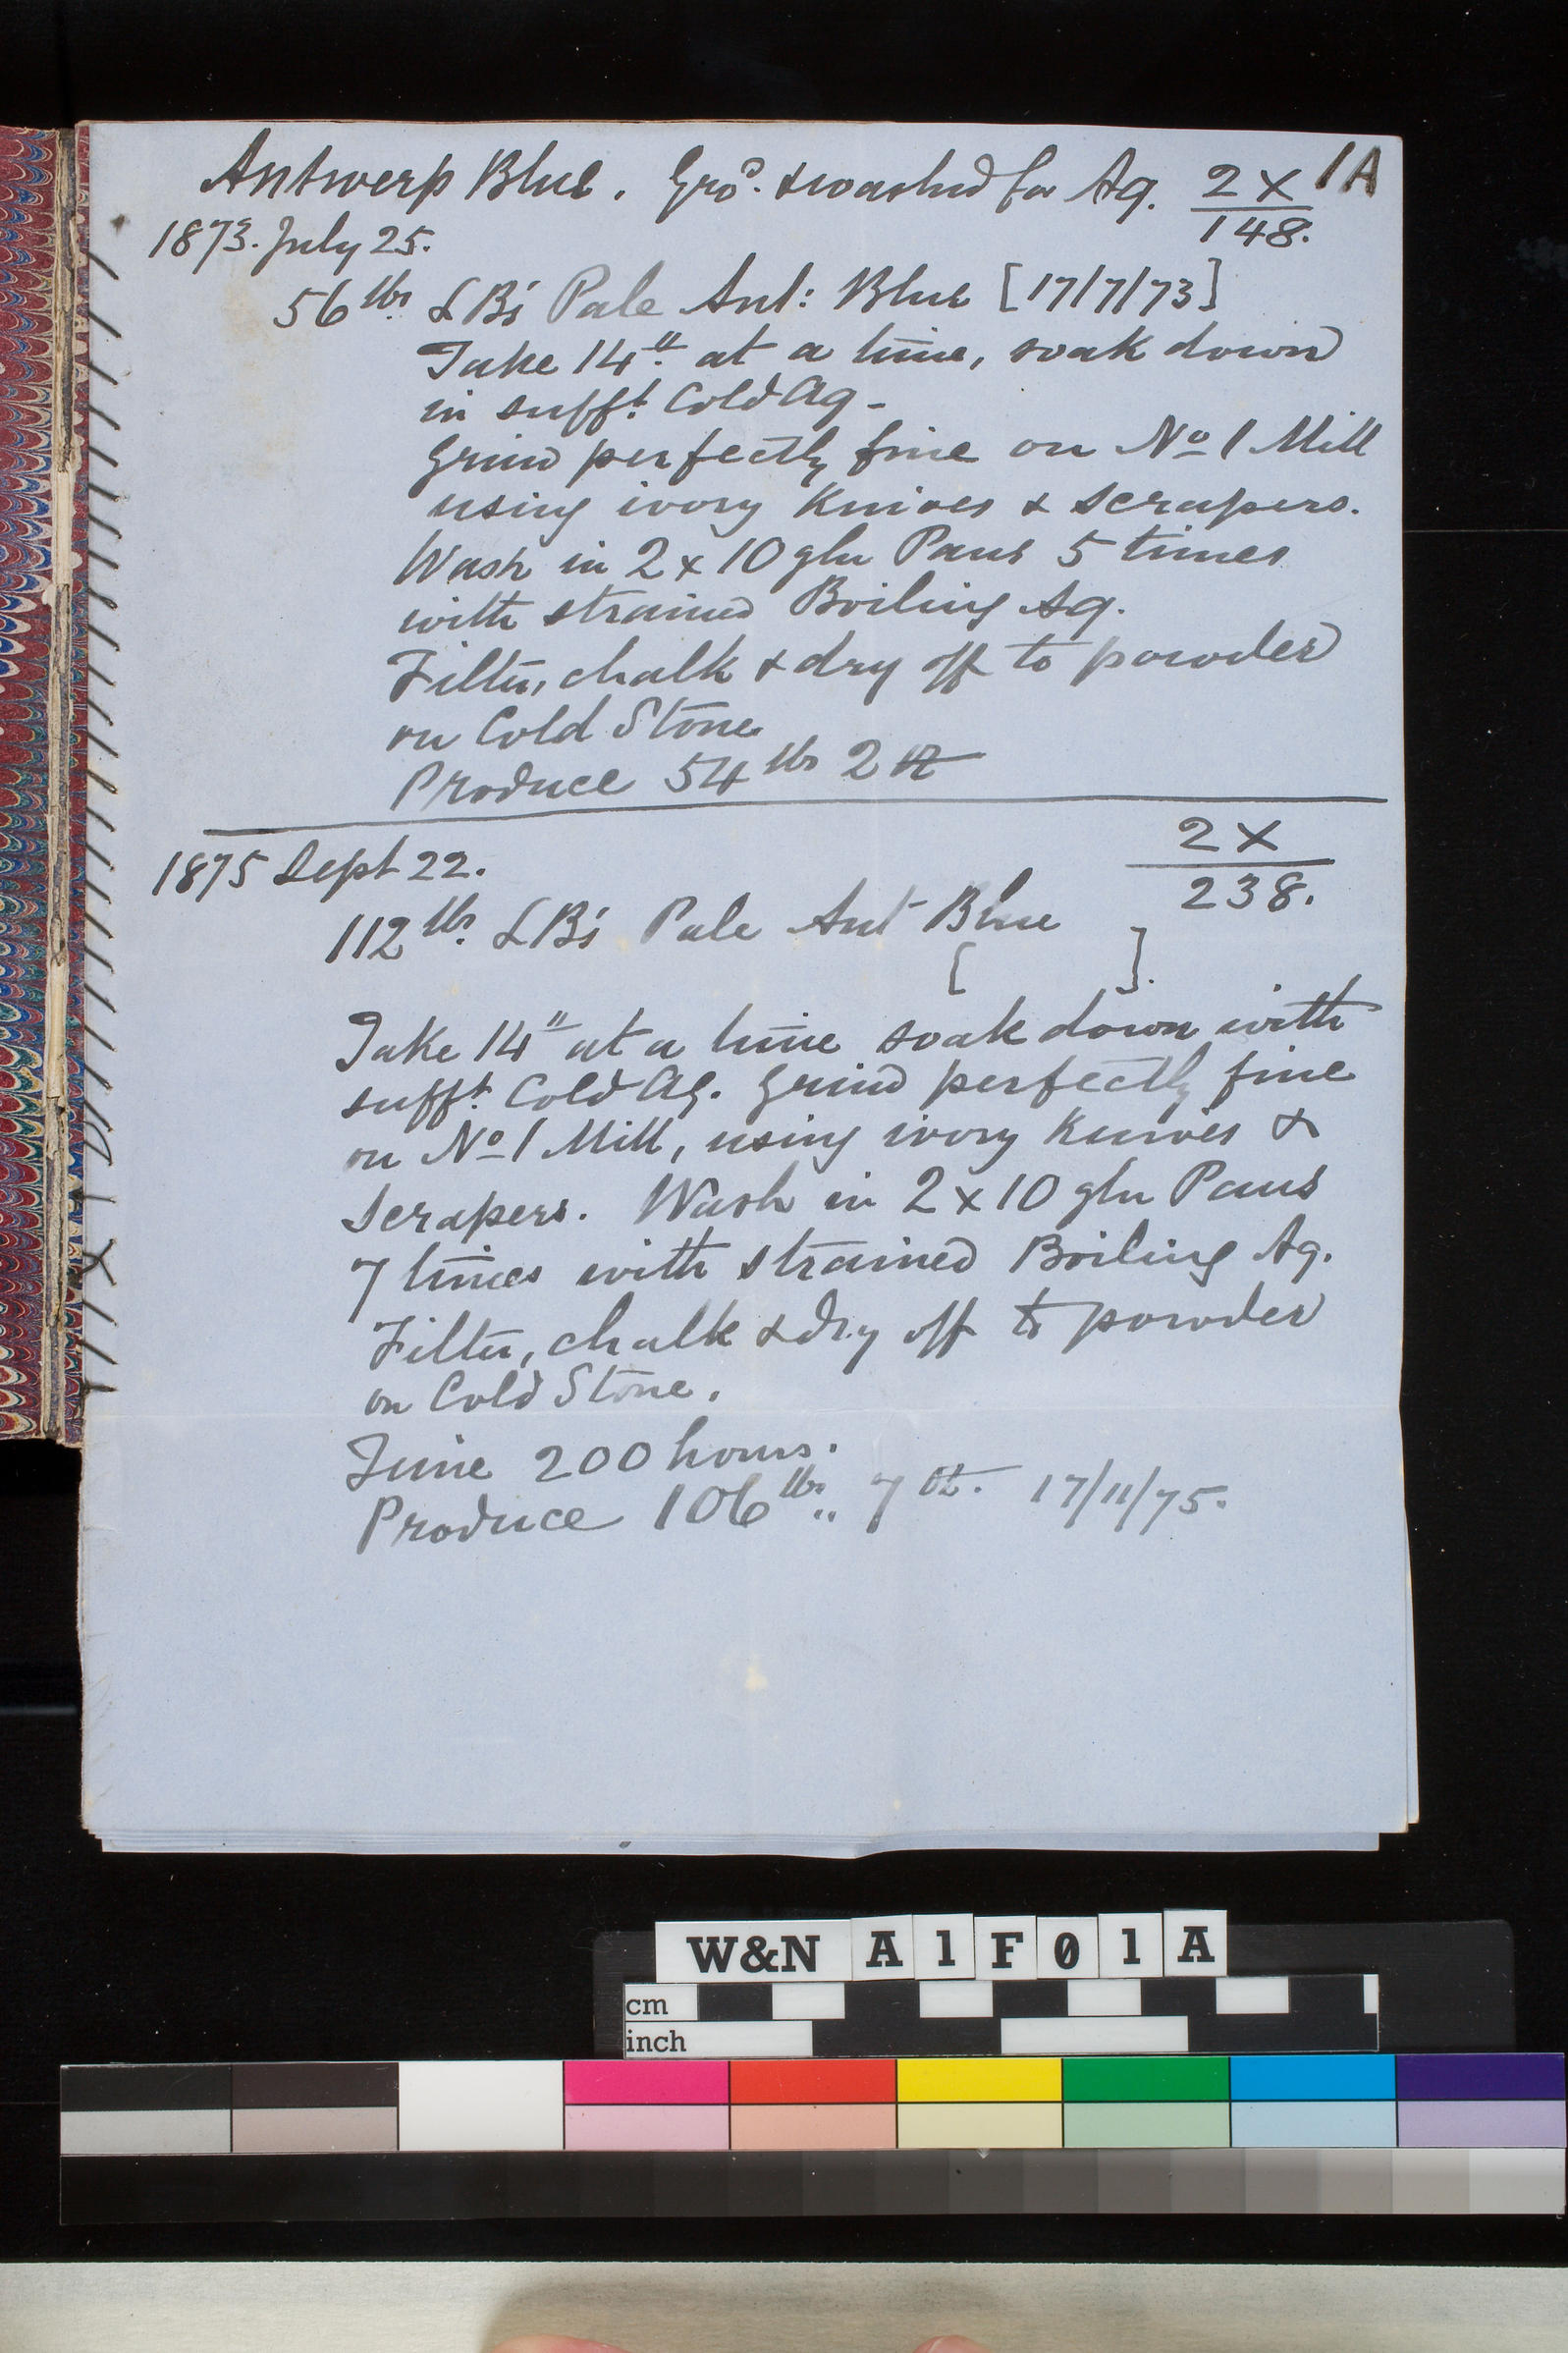 Antwerp Blue. Gro^d. & washed for Aq. 2X/148. 1A
1873. July 25.
56 lbs LB's Pale Ant: Blue [17/7/73]
Take 14" at a time, soak down
in suff^t. Cold Aq -
Grind perfectly fine on No 1 Mill
using ivory Knives & Scrapers.
Wash in 2 x 10 gln Pans 5 times
with strained Boiling Aq.
Filter, chalk & dry off to powder
on Cold Stone
Produce 54 lbs 2 oz
1875 Sept 22. 2X/238.
112 lbs. LB's Pale Ant Blue
[ ].
Take 14" at a time soak down with
suff^t. Cold Aq. Grind perfectly fine
on No 1 Mill, using ivory Knives &
Scrapers. Wash in 2 x 10 gln Pans
7 times with strained Boiling Aq.
Filter, chalk & dry off to powder
on Cold Stone.
Time 200 hours.
Produce 106 lbs.. 7 oz. 17/11/75.
W&N A1F01A
cm
inch